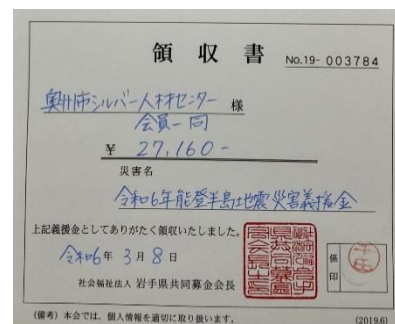 領収書
No.19- 003784
奥州市シルバー人材センター 様
会員一同
¥ 27,160-
災害名
令和6年能登半島地震災害義援金
上記義援金としてありがたく領収いたしました。
令和6年 3月 8日
社会福祉法人 岩手県共同募金会長
係印
(備考) 本会では、個人情報を適切に取り扱います。
(2019.6)